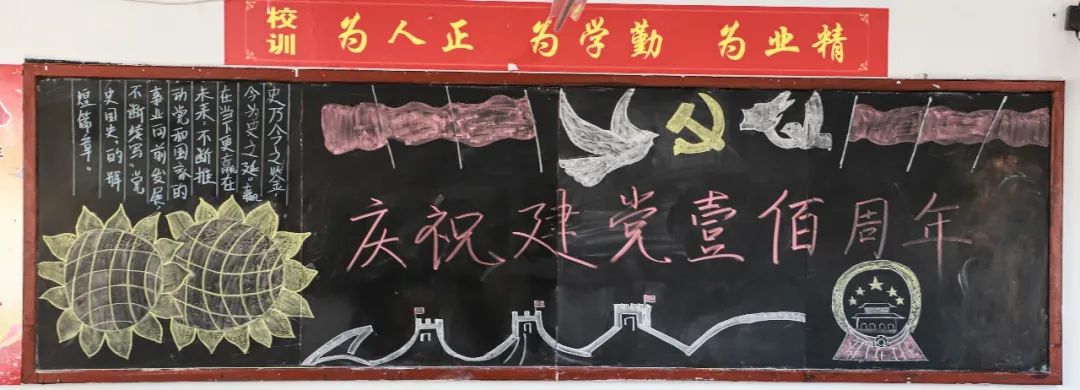 校训
为人正 为学勤 为业精
史乃今之鉴,
今为史之延。赢
在当下更赢在
未来,不断推
动党和国家的
事业向前发展,
不断续写党
史国史的辉
煌篇章。
庆祝建党壹佰周年